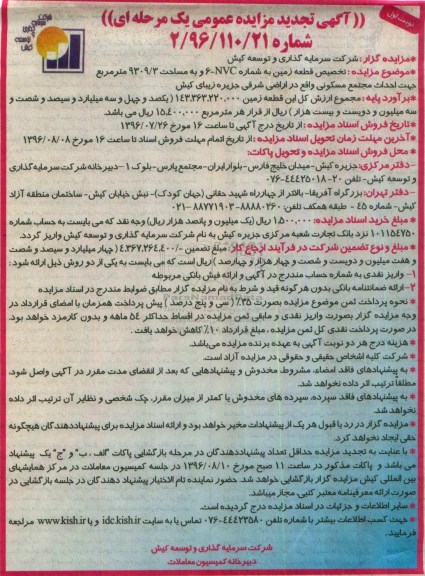 نوبت اول
((آگهی تجدید مزایده عمومی یک مرحله ای))
شماره ۲/۹۶/۱۱۰/۲۱
* مزایده گزار: شرکت سرمایه گذاری و توسعه کیش
* موضوع مزایده: تخصیص قطعه زمین به شماره NVC-۶ و به مساحت ۹۳۰۹/۳ مترمربع
جهت احداث مجتمع مسکونی واقع در اراضی شرقی جزیره زیبای کیش
* برآورد پایه: مجموع ارزش کل این قطعه زمین ۱۴۳،۳۶۳،۲۲۰،۰۰۰ (یکصد و چهل و سه میلیارد و سیصد و شصت و
سه میلیون و دویست و بیست هزار) ریال از قرار هر مترمربع ۱۵،۴۰۰،۰۰۰ ریال می باشد.
* تاریخ فروش اسناد مزایده: از تاریخ درج آگهی تا ساعت ۱۶ مورخ ۱۳۹۶/۰۷/۲۶
* آخرین مهلت زمان تحویل اسناد مزایده: از تاریخ اتمام مهلت فروش اسناد تا ساعت ۱۶ مورخ ۱۳۹۶/۰۸/۰۸
* محل فروش اسناد مزایده و تحویل پاکات:
- دفتر مرکزی: جزیره کیش- میدان خلیج فارس- بلوار ایران- مجتمع پارس- بلوک ۱- دبیرخانه شرکت سرمایه گذاری
و توسعه کیش- تلفن ۲۰-۰۷۶-۴۴۴۲۵۰۱۸
- دفتر تهران: بزرگراه آفریقا- بالاتر از چهارراه شهید حقانی (جهان کودک)- نبش خیابان کیش- ساختمان منطقه آزاد
کیش- شماره ۴۵ - طبقه همکف تلفن: ۸۸۸۸۰۲۶۰-۸۸۷۷۱۹۰۳-۰۲۱
* مبلغ خرید اسناد مزایده: ۱،۵۰۰،۰۰۰ ریال (یک میلیون و پانصد هزار ریال) وجه نقد که می بایست به حساب شماره
۱۰۱۱۵۴۷۵۰ نزد بانک تجارت شعبه مرکزی جزیره کیش به نام شرکت سرمایه گذاری و توسعه کیش واریز گردد.
* مبلغ و نوع تضمین شرکت در فرآیند ارجاع کار: مبلغ تضمین -/۴،۳۶۷،۲۶۴،۴۰۰ (چهار میلیارد و سیصد و شصت
و هفت میلیون و دویست و شصت و چهار هزار و چهارصد) ریال است که می بایست به یکی از دو روش ذیل ارائه شود:
۱- واریز نقدی به شماره حساب مندرج در آگهی و ارائه فیش بانکی مربوطه
۲- ارائه ضمانتنامه بانکی بدون هر گونه قید و شرط به نام مزایده گزار مطابق ضوابط مندرج در اسناد مزایده
* نحوه پرداخت ثمن موضوع مزایده بصورت ۳۵٪ (سی و پنج درصد) پیش پرداخت همزمان با امضای قرارداد در
وجه مزایده گزار بصورت واریز نقدی و مابقی ثمن مزایده در اقساط حداکثر ۵۴ ماهه و بدون کارمزد خواهد بود.
در صورت پرداخت نقدی کل ثمن مزایده، مبلغ قرارداد ۱۰٪ کاهش خواهد یافت.
* هزینه درج هر دو نوبت آگهی به عهده برنده مزایده می باشد.
* شرکت کلیه اشخاص حقیقی و حقوقی در مزایده آزاد است.
* به پیشنهادهای فاقد امضاء، مشروط، مخدوش و پیشنهادهایی که بعد از انقضای مدت مقرر در آگهی واصل شود،
مطلقاً ترتیب اثر داده نخواهد شد.
* به پیشنهادهای فاقد سپرده، سپرده های مخدوش یا کمتر از میزان مقرر، چک شخصی و نظایر آن ترتیب اثر داده
نخواهد شد.
* مزایده گزار در رد یا قبول هر یک از پیشنهادات مخیر خواهد بود و ارائه اسناد مزایده برای پیشنهاددهندگان هیچگونه
حقی ایجاد نخواهد کرد.
* با عنایت به تجدید مزایده حداقل تعداد پیشنهاددهندگان در مرحله بازگشایی پاکات "الف، ب" و "ج" یک پیشنهاد
می باشد و پاکات مذکور در ساعت ۱۱ صبح مورخ ۱۳۹۶/۰۸/۱۰ در جلسه کمیسیون معاملات در مرکز همایشهای
بین المللی کیش مزایده گزار بازگشایی خواهد شد. حضور نماینده تام الاختیار پیشنهاد دهندگان در جلسه بازگشایی در
صورت ارائه معرفینامه معتبر کتبی، مجاز میباشد.
* سایر اطلاعات و جزئیات در اسناد مزایده درج گردیده است.
* جهت کسب اطلاعات بیشتر با شماره تلفن ۴۴۴۲۳۵۸۰-۰۷۶ تماس یا به سایت idc.kish.ir و یا www.kish.ir مراجعه
فرمایید.
شرکت سرمایه گذاری و توسعه کیش
دبیرخانه کمیسیون معاملات